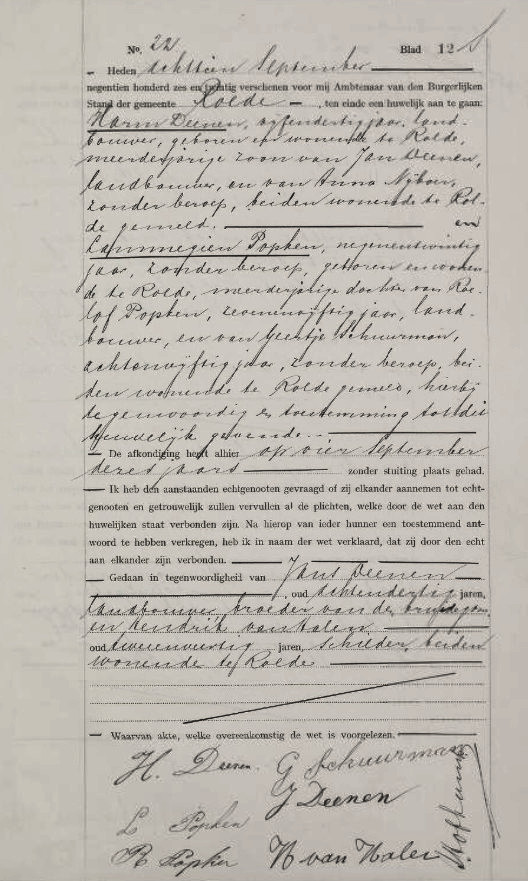 No. 22 Blad 12
— Heden achttien September
negentien honderd zes en twintig verschenen voor mij Ambtenaar van den Burgerlijken
Stand der gemeente Rolde —, ten einde een huwelijk aan te gaan:
Harm Deenen, vyfendertig jaar, land-
bouwer, geboren en wonende te Rolde,
meerderjarige zoon van Jan Deenen,
landbouwer, en van Anna Nijboer,
zonder beroep, beiden wonende te Rol-
de gemeld. — en
Lammegien Popken, negenentwintig
jaar, zonder beroep, geboren en wonen-
de te Rolde, meerderjarige dochter van Roe-
lof Popken, zevenenvijftig jaar, land-
bouwer, en van Geertje Schuurman,
achtenvijftig jaar, zonder beroep, bei-
den wonende te Rolde gemeld, hierbij
tegenwoordig en toestemming tot dit
huwelijk gevende. —
— De afkondiging heeft alhier op vier September
dezes jaars — zonder stuiting plaats gehad.
— Ik heb den aanstaanden echtgenooten gevraagd of zij elkander aannemen tot echt-
genooten en getrouwelijk zullen vervullen al de plichten, welke door de wet aan den
huwelijken staat verbonden zijn. Na hierop van ieder hunner een toestemmend ant-
woord te hebben verkregen, heb ik in naam der wet verklaard, dat zij door den echt
aan elkander zijn verbonden. —
— Gedaan in tegenwoordigheid van Jans Deenen —
—, oud achtendertig jaren,
landbouwer, broeder van de bruidegom
en Hendrik van Halen —
oud tweeenveertig jaren, schilder, beiden
wonende te Rolde —
— Waarvan akte, welke overeenkomstig de wet is voorgelezen. —
H. Deenen. G Schuurman
J Deenen
L Popken
R Popken H van Halen